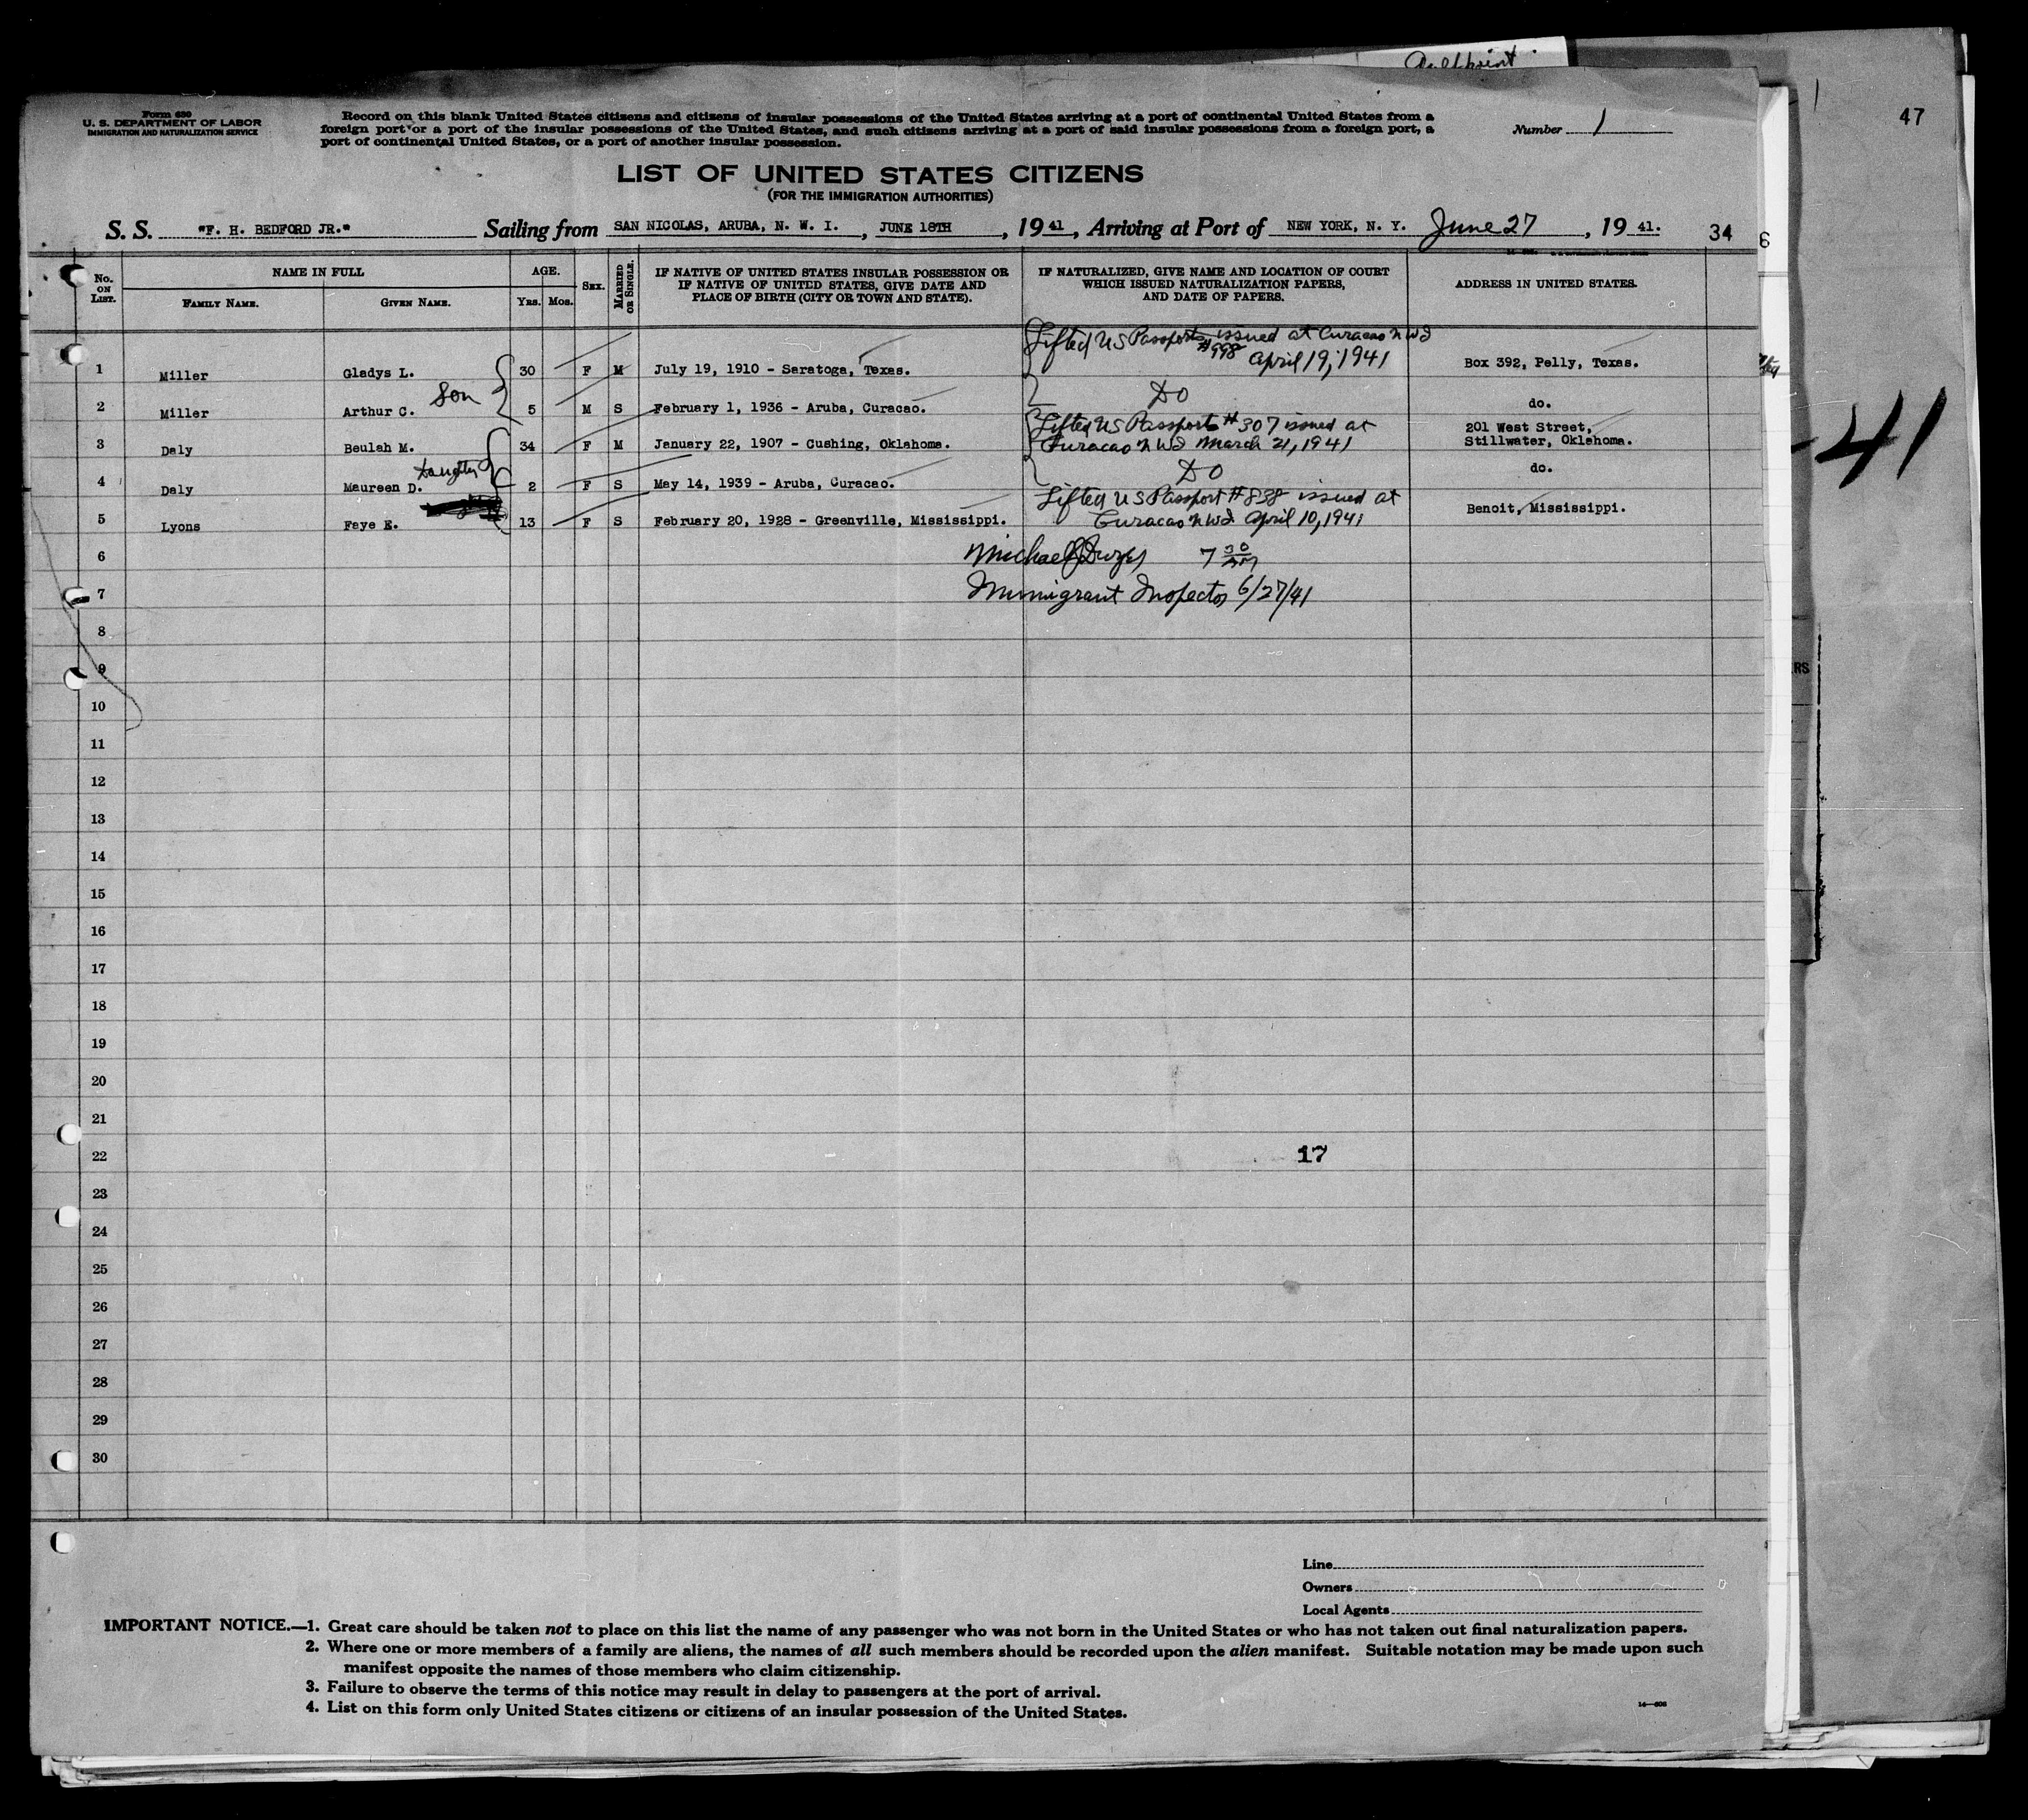 47
Form 630
U. S. DEPARTMENT OF LABOR
IMMIGRATION AND NATURALIZATION SERVICE
Record on this blank United States citizens and citizens of insular possessions of the United States arriving at a port of continental United States from a
foreign port or a port of the insular possessions of the United States, and such citizens arriving at a port of said insular possessions from a foreign port, a
port of continental United States, or a port of another insular possession.
Number 1
LIST OF UNITED STATES CITIZENS
(FOR THE IMMIGRATION AUTHORITIES)
S. S. "F. H. BEDFORD JR." Sailing from SAN NICOLAS, ARUBA, N. W. I. , JUNE 18TH , 19 41 , Arriving at Port of NEW YORK, N. Y. June 27 , 19 41. 34 6
No. ON LIST. NAME IN FULL FAMILY NAME. GIVEN NAME. AGE. YRS. MOS. SEX. MARRIED OR SINGLE. IF NATIVE OF UNITED STATES INSULAR POSSESSION OR IF NATIVE OF UNITED STATES, GIVE DATE AND PLACE OF BIRTH (CITY OR TOWN AND STATE). IF NATURALIZED, GIVE NAME AND LOCATION OF COURT WHICH ISSUED NATURALIZATION PAPERS, AND DATE OF PAPERS. ADDRESS IN UNITED STATES.
Lifted US Passport issued at Curacao NWI
1 Miller Gladys L. 30 F M July 19, 1910 - Saratoga, Texas. #998 April 19, 1941 Box 392, Pelly, Texas.
2 Miller Arthur C. Son 5 M S February 1, 1936 - Aruba, Curacao. DO do.
Lifted US Passport #307 issued at 201 West Street,
3 Daly Beulah M. 34 F M January 22, 1907 - Cushing, Oklahoma. Curacao NWI March 21, 1941 Stillwater, Oklahoma.
4 Daly Maureen D. Daughter 2 F S May 14, 1939 - Aruba, Curacao. DO do.
Lifted US Passport #838 issued at
5 Lyons Faye E. 13 F S February 20, 1928 - Greenville, Mississippi. Curacao NWI April 10, 1941 Benoit, Mississippi.
6 Michael 7 30
7 Immigrant Inspector 6/27/41
41
8
9
RS
10
11
12
13
14
15
16
17
18
19
20
21
22 17
23
24
25
26
27
28
29
30
Line
Owners
Local Agents
IMPORTANT NOTICE.—1. Great care should be taken not to place on this list the name of any passenger who was not born in the United States or who has not taken out final naturalization papers.
2. Where one or more members of a family are aliens, the names of all such members should be recorded upon the alien manifest. Suitable notation may be made upon such
manifest opposite the names of those members who claim citizenship.
3. Failure to observe the terms of this notice may result in delay to passengers at the port of arrival.
4. List on this form only United States citizens or citizens of an insular possession of the United States.